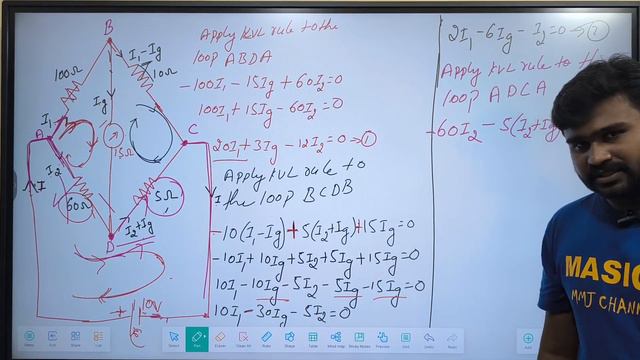 B
100Ω
I₁-Ig
10Ω
I₁
Ig
A
C
15Ω
I₂
I
60Ω
5Ω
I
D
I₂+Ig
+
10V
Apply KVL rule to the
loop ABDA
-100I₁-15Ig+60I₂=0
100I₁+15Ig-60I₂=0
20I₁+3Ig-12I₂=0→①
Apply KVL rule to
the loop BCDB
-10(I₁-Ig)+5(I₂+Ig)+15Ig=0
-10I₁+10Ig+5I₂+5Ig+15Ig=0
10I₁-10Ig-5I₂-5Ig-15Ig=0
10I₁-30Ig-5I₂=0
2I₁-6Ig-I₂=0→②
Apply KVL rule to
loop ADCA
-60I₂-5(I₂+Ig
MASIC
MMJ CHANN